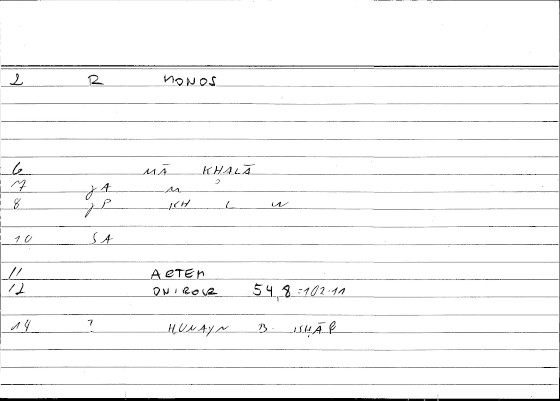 2 R MONOS
6 MĀ KHALĀ
7 JA M
8 JP KH L W
10 SA
11 ARTEM
12 ONIROCR 54,8 = 102.11
14 ? HUNAYN B. ISḤĀQ